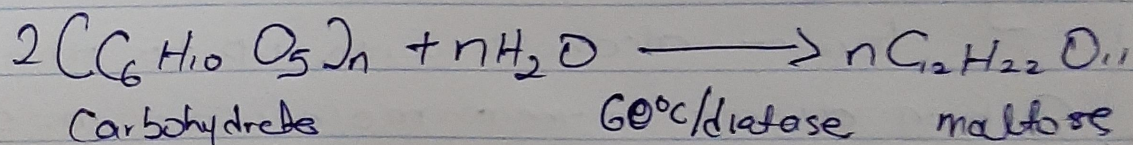 2(C₆H₁₀O₅)n + nH₂O ⟶ nC₁₂H₂₂O₁₁
Carbohydrates 60°c/diatase maltose